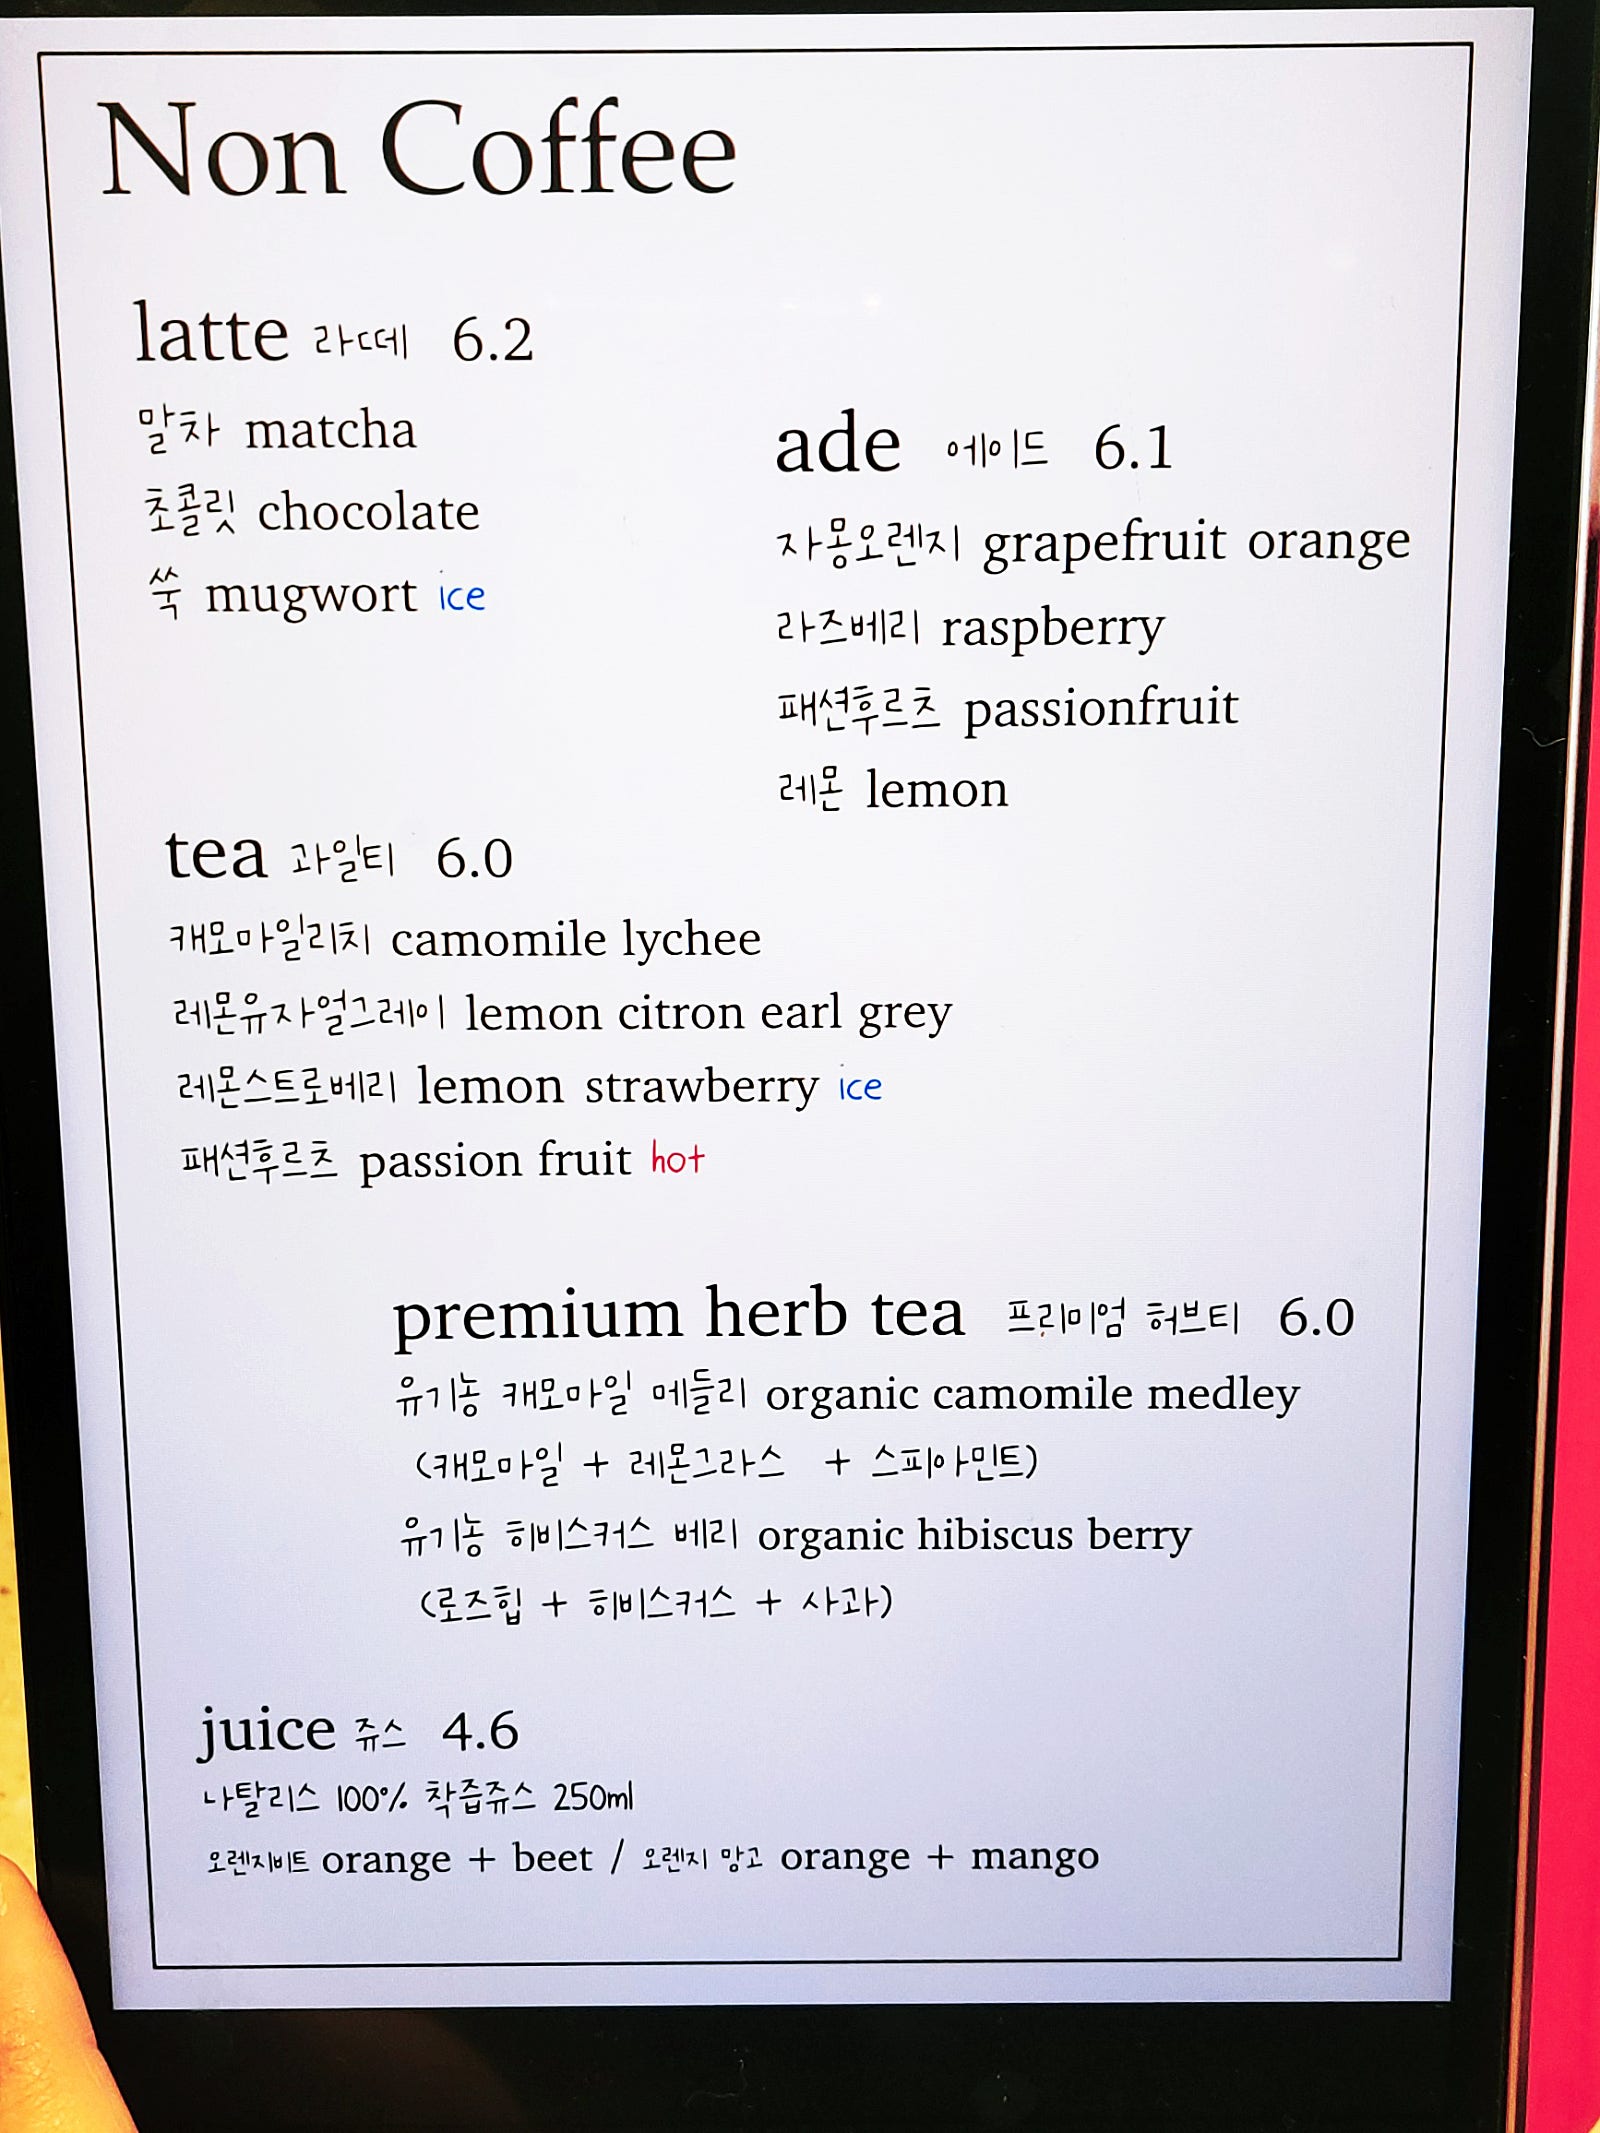 Non Coffee
latte 라떼 6.2
말차 matcha
초콜릿 chocolate
쑥 mugwort ice
ade 에이드 6.1
자몽오렌지 grapefruit orange
라즈베리 raspberry
패션후르츠 passionfruit
레몬 lemon
tea 과일티 6.0
캐모마일리치 camomile lychee
레몬유자얼그레이 lemon citron earl grey
레몬스트로베리 lemon strawberry ice
패션후르츠 passion fruit hot
premium herb tea 프리미엄 허브티 6.0
유기농 캐모마일 메들리 organic camomile medley
(캐모마일 + 레몬그라스 + 스피아민트)
유기농 히비스커스 베리 organic hibiscus berry
(로즈힙 + 히비스커스 + 사과)
juice 쥬스 4.6
나탈리스 100% 착즙쥬스 250ml
오렌지비트 orange + beet / 오렌지 망고 orange + mango